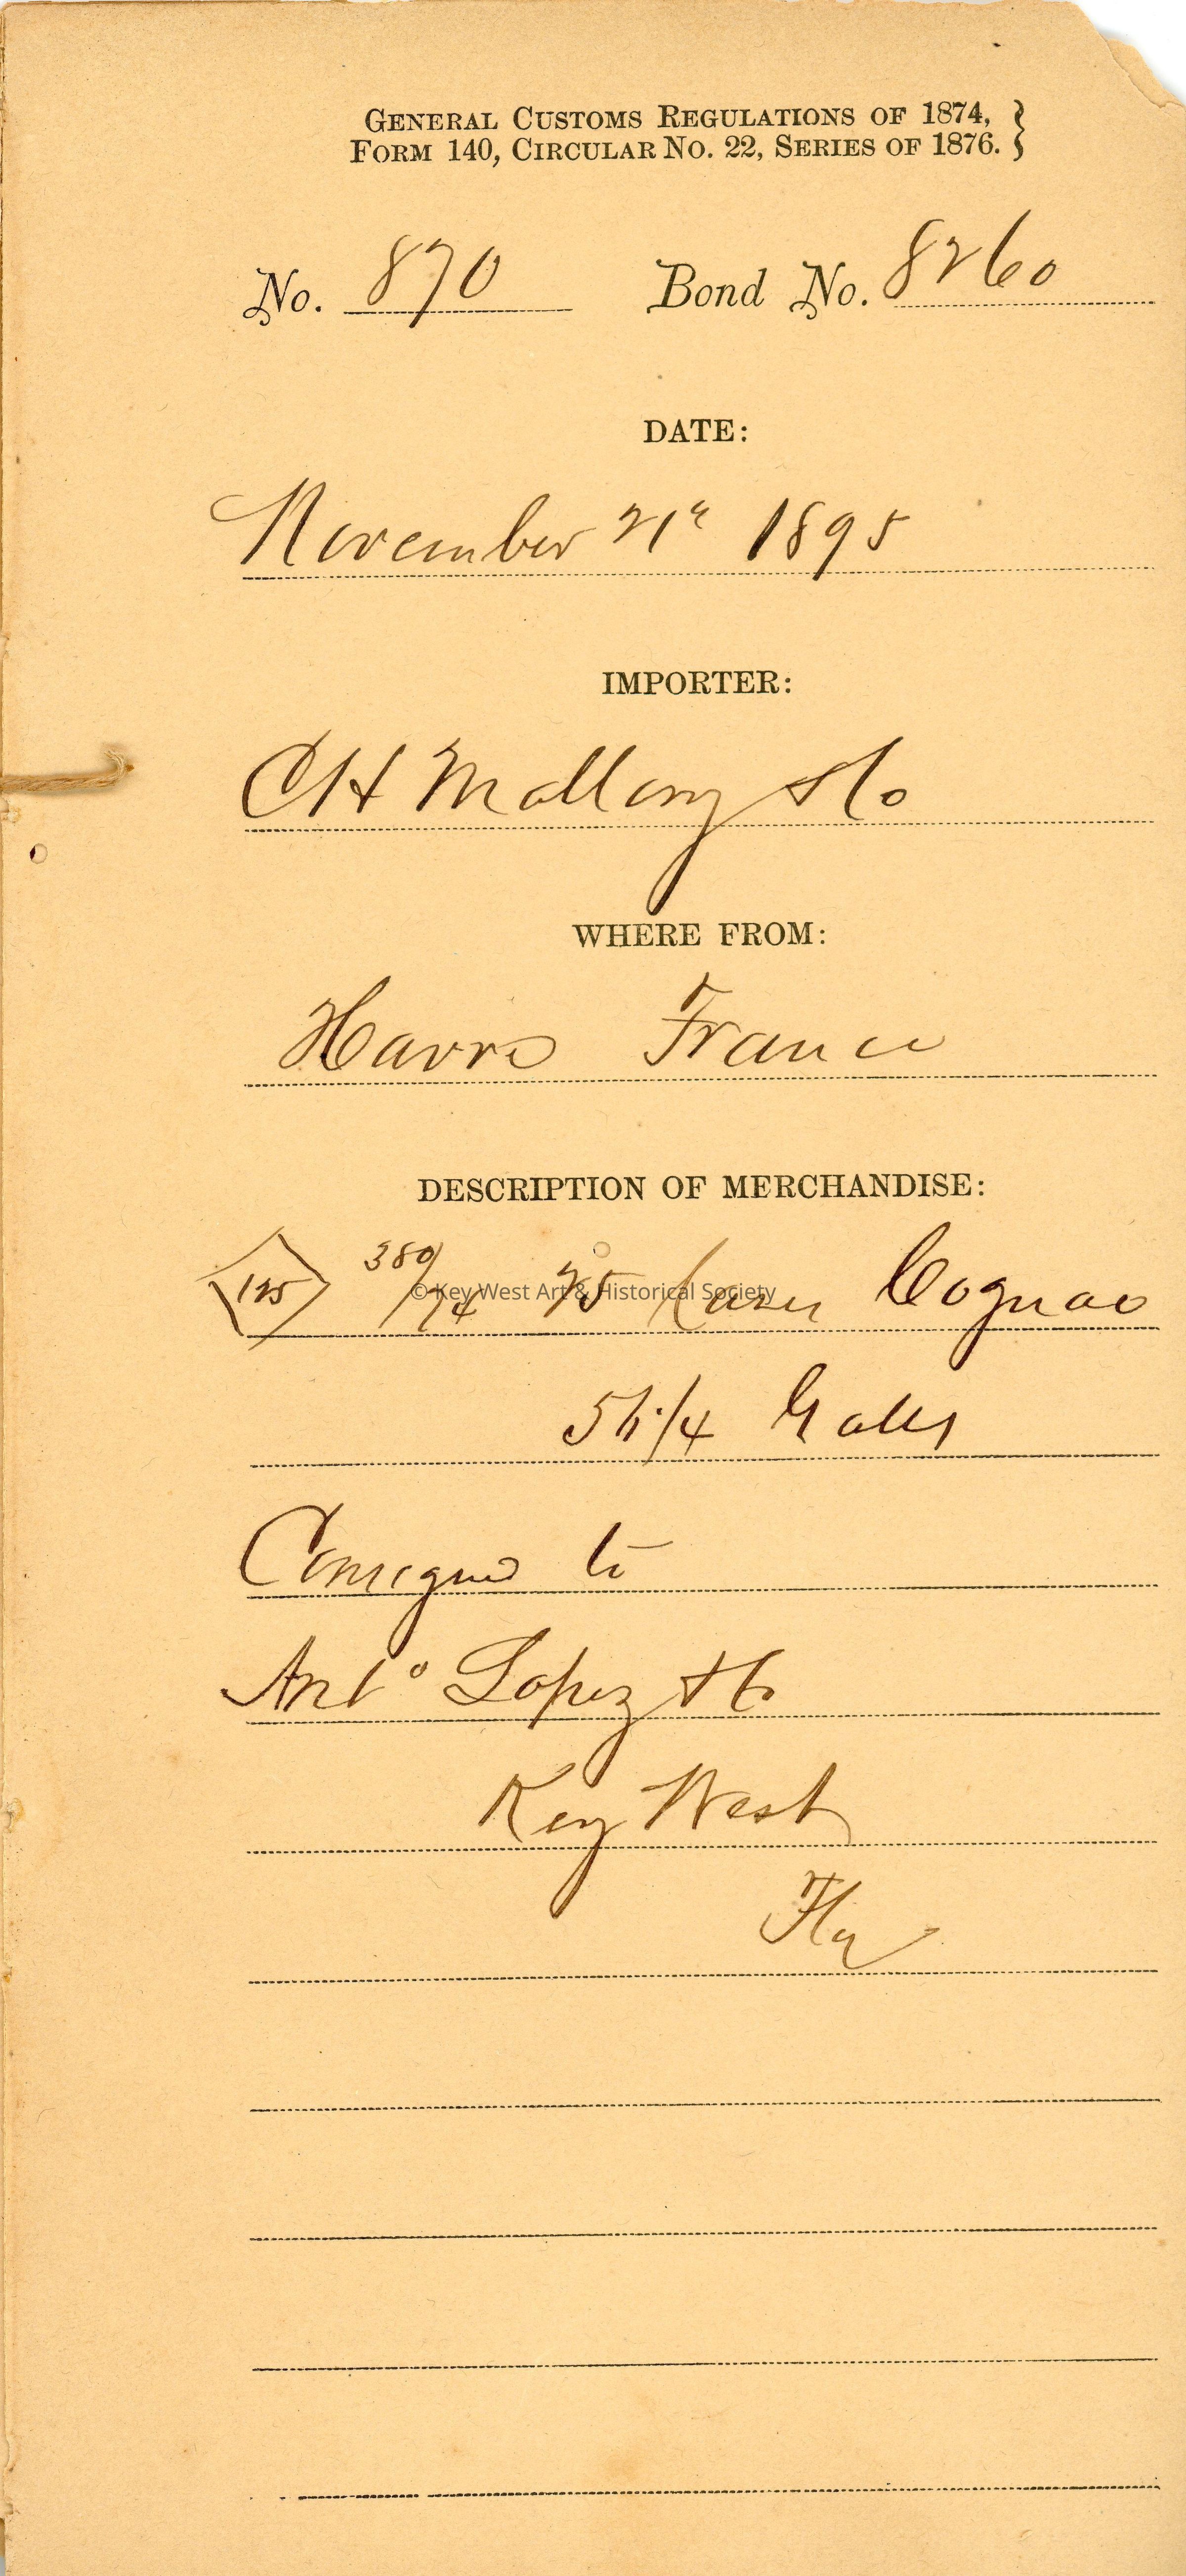 GENERAL CUSTOMS REGULATIONS OF 1874,
FORM 140, CIRCULAR NO. 22, SERIES OF 1876.
No. 870 Bond No. 8260
DATE:
November 21st 1895
IMPORTER:
CH Mallory & Co
WHERE FROM:
Havre France
DESCRIPTION OF MERCHANDISE:
125 380/74 25 Cases Cognac
© Key West Art & Historical Society
Galls
Consigned to
Anto Lopez & Co
Key West
Fla